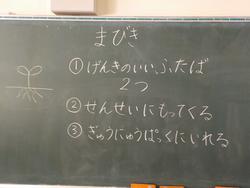 まびき
①げんきのいい、ふたば
2つ
②せんせいにもってくる
③ぎゅうにゅうぱっくにいれる